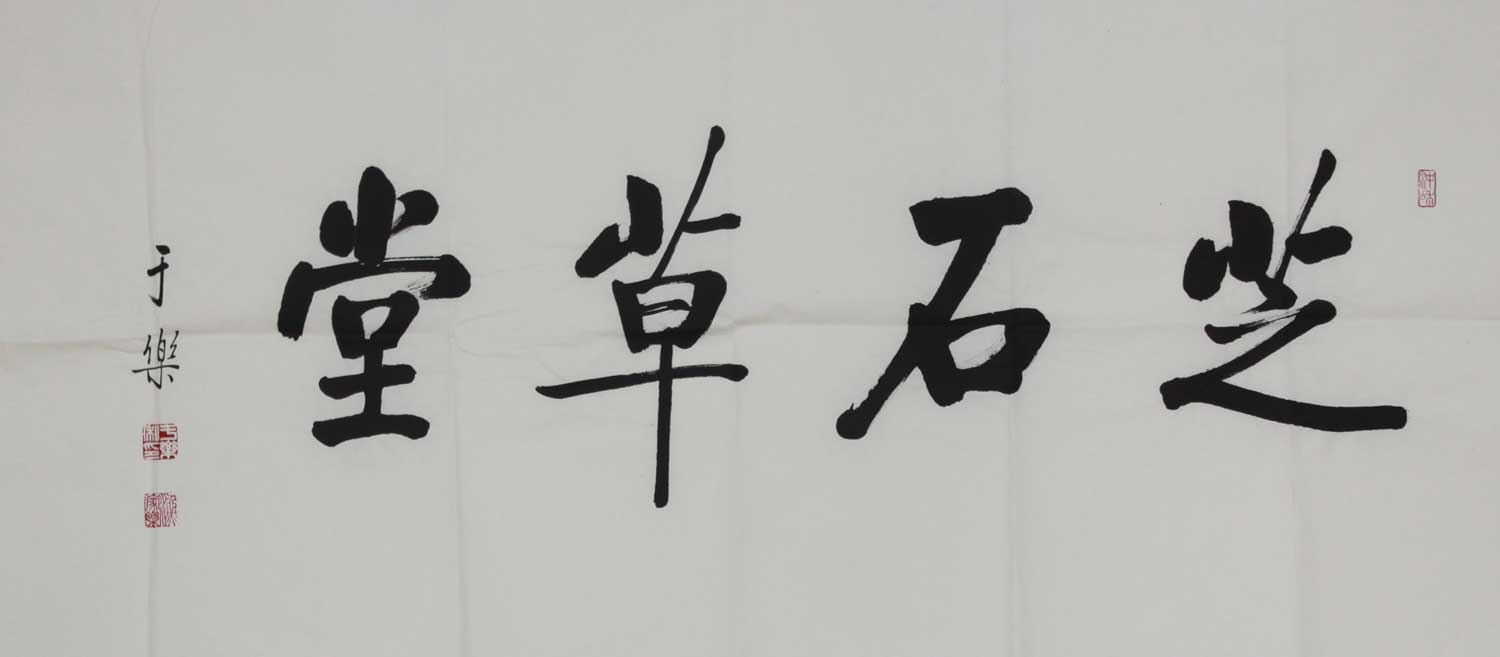 芝石草堂
于樂